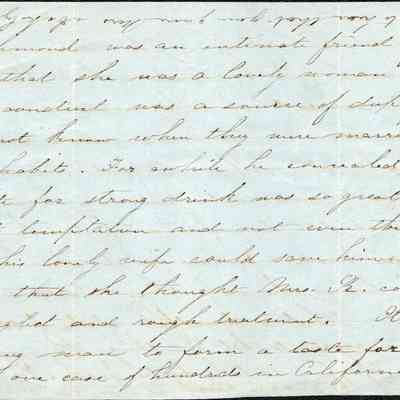 mmond was an intimate friend
that she was a lovely woman
conduct was a source of
not know when they were marri
habits. For a while he concealed
te for strong drink was so great
temptation and not even th
his lovely wife could save him
that she thought Mrs. R. co
and rough treatment.
ng man to form a taste for
one case of hundreds in Californi